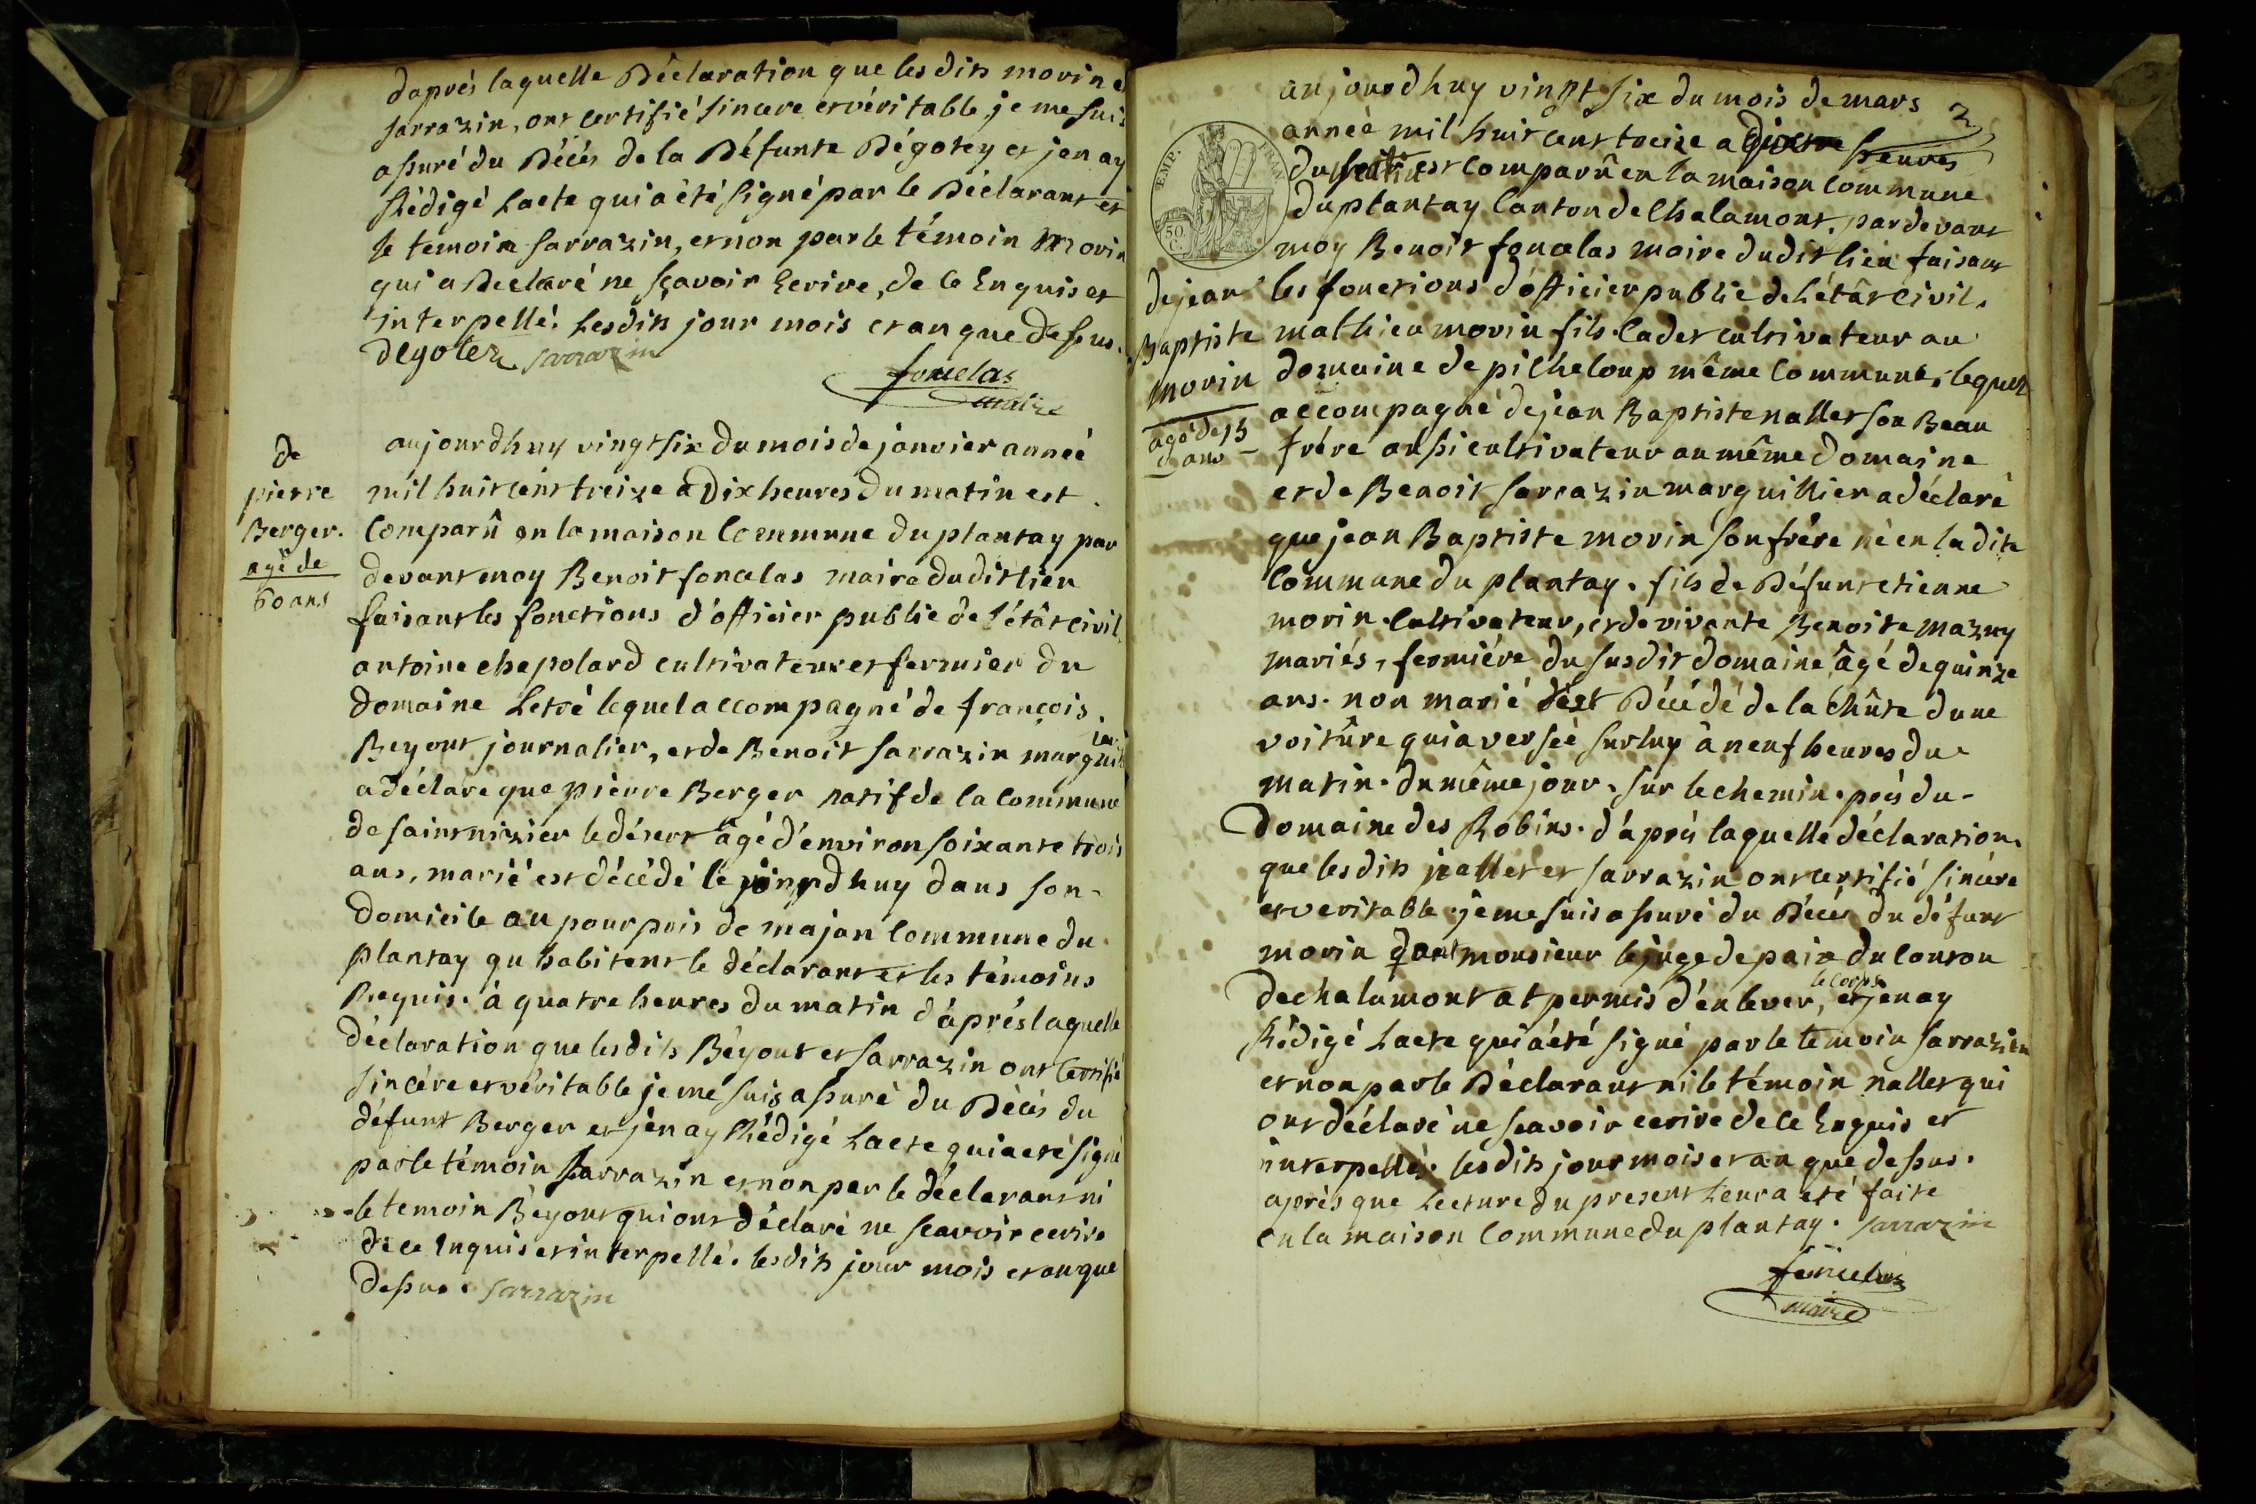 daprés laquelle Déclaration que les dits morin e
sarrazin, ont certifié sincere et véritable, je me suis
assuré du Décés de la Défunte Dégotey et jen ay
Rédigé Lacte qui a été signé par le Déclarant et
le témoin sarrazin, et non par le témoin Morin
qui a Declaré ne sçavoir Ecrire, de ce Enquis et
interpellé. Lesdits jour mois et an que dessus.
degotez sarrazin
foncelas
maire
de
pierre
Berger.
agé de
60 ans
aujourdhuy vingt six du mois de janvier anneé
mil huit cent treize a Dix heures du matin est
Comparû en la maison Commune du plantay par
devant moy Benoit foncelas maire dudit lieu
faisant les fonctions d'officier public de l'étât civil
antoine chapolard cultivateur et fermier du
domaine Letré lequel accompagné de françois
Beyout journalier, et de Benoit sarrazin marguil
lier
a déclaré que pièrre Berger natif de la Commune
de saint nizier le désert âgé d'énviron soixante trois
ans, marié est décédé le jourdhuy dans son
Domicile au pourpris de majan Commune du
plantay qu habitent le déclarant et les témoins
Requis. à quatre heures du matin d'áprés laquelle
déclaration que les dits Béyout et sarrazin ont Certifié
sincére et véritable je me suis assuré du Décés du
défunt Berger et jén ay Rédigé Lacte qui a eté signé
par le témoin sarrazin et non par le déclarant ni
le temoin Béyout qui ont déclaré ne sçavoir ecrire
de ce Enquis et interpellé. les dits jour mois et an que
dessus. sarrazin
2
EMP. FRAN.
50 C.
de jean
Baptiste
morin
agé de 15
ans
aujourdhuy vingt six du mois de mars
anneé mil huit cent treize a heures
du est Comparû en la maison Commune
du plantay Canton de Chalamont. par devant
moy Benoit foncelas maire dudit lieu faisant
les fonctions d'officier public de L'étât Civil.
mathieu morin fils Cadet cultivateur au
domaine de picheloup même Commune, lequel
accompagné de jean Baptiste nallet son Beau
frére aussi cultivateur au même domaine
et de Benoit sarrazin marguillier a déclaré
que jean Baptiste morin son frére né en la dite
Commune du plantay. fils de Défunt etienne
morin Cultivateur, et de vivante Benoite mazuy
mariés, fermiére du susdit domaine âgé de quinze
ans. non marié est Décédé de la Chûte dune
voitûre qui a verseé sur luy à neuf heures du
matin. du même jour. sur le chemin. près du
Domaine des Robins. d'áprés laquelle déclaration
que les dits nallet et sarrazin ont certifié sincére
et veritable. je me suis assuré du Décés du défunt
morin dont monsieur le juge de paix du Canton
de chalamont at permis d'enlever, le Corps et jen ay
Rédigé Lacte qui a été signé par le temoin sarrazin
et non par le Déclarant ni le témoin nallet qui
ont déclaré ne sçavoir ecrire de ce Enquis et
interpellés. les dits jour mois et an que dessus.
après que Lecture du present Leur a eté faite
en la maison Commune du plantay. sarrazin
foncelas
maire